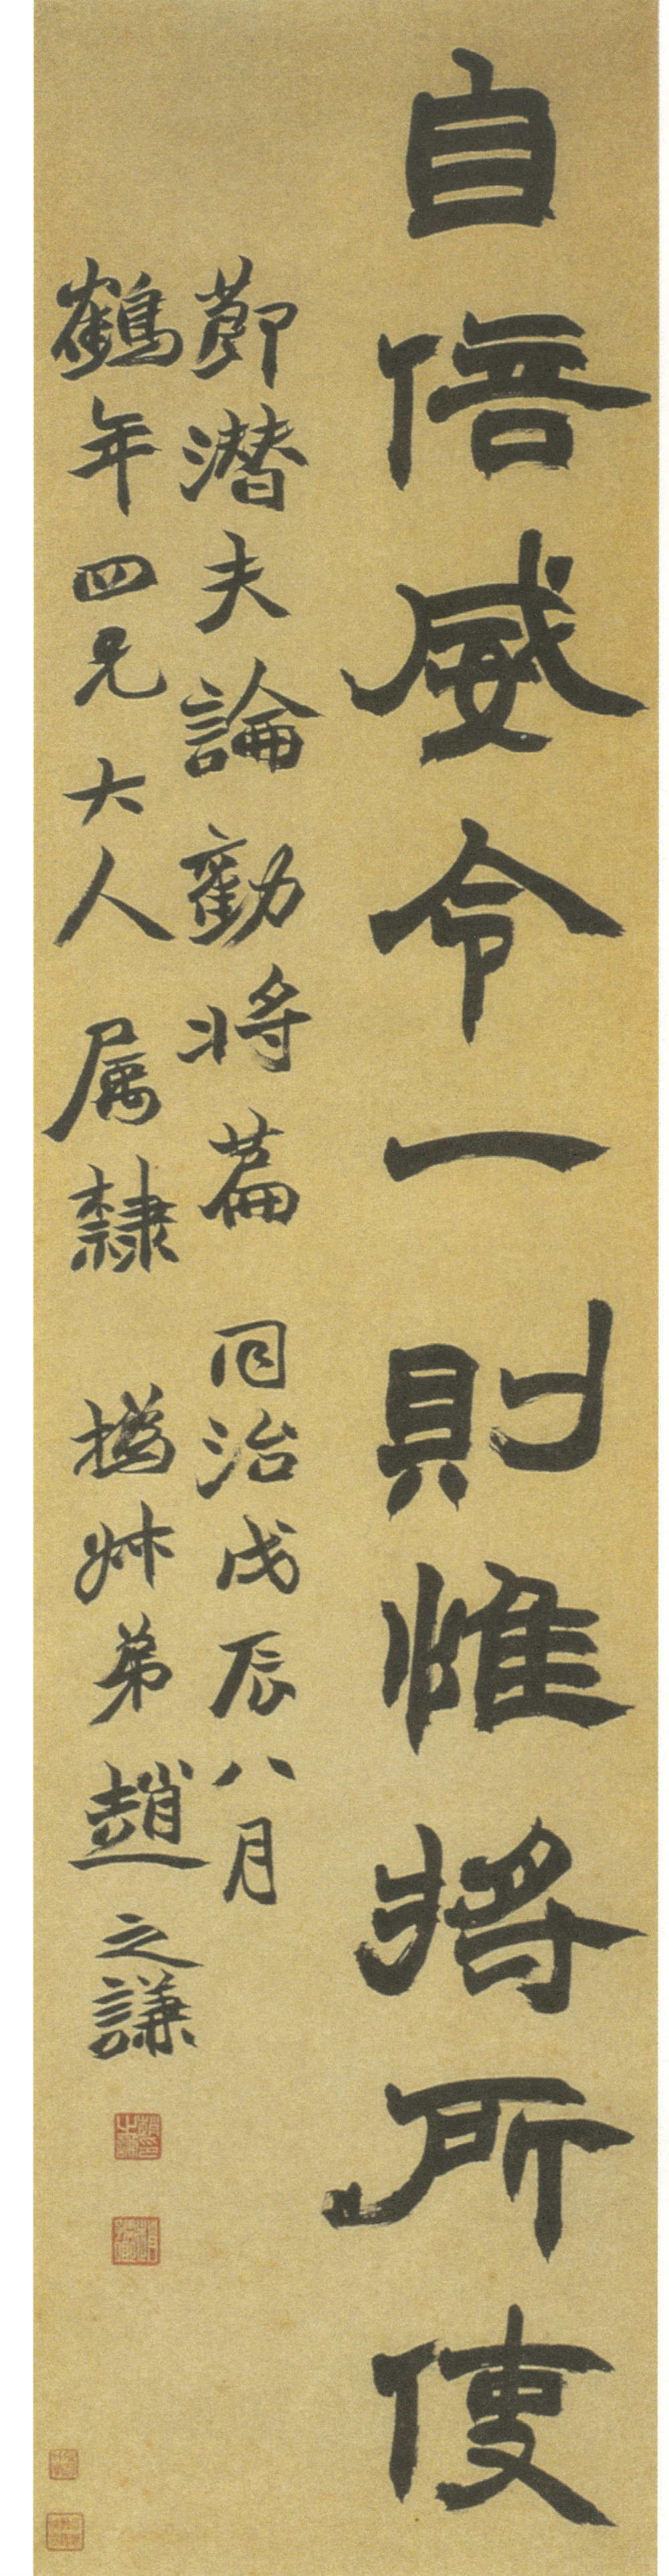 自倍威令一則惟將所使
莭潜夫論勸將篇 同治戊辰八月
鶴年四兄大人 属隸 撝叔弟趙之謙